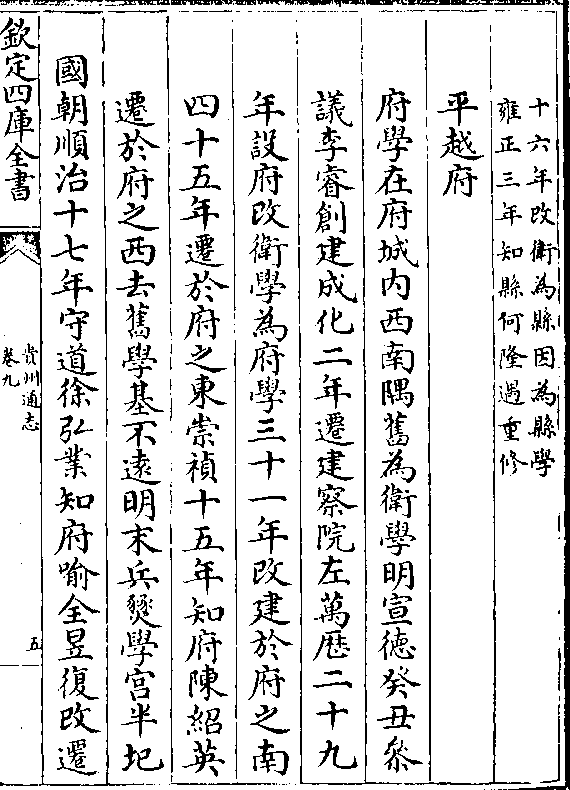 十六年改衛為縣因為縣學
雍正三年知縣何隆遇重修
平越府
府學在府城内西南隅舊為衛學明宣徳癸丑叅
議李睿創建成化二年遷建察院左萬厯二十九
年設府改衛學為府學三十一年改建於府之南
四十五年遷於府之東崇禎十五年知府陳紹英
遷於府之西去舊學基不遠明末兵燹學宫半圮
國朝順治十七年守道徐弘業知府喻全昱復改遷
欽定四庫全書
貴州通志
卷九
五